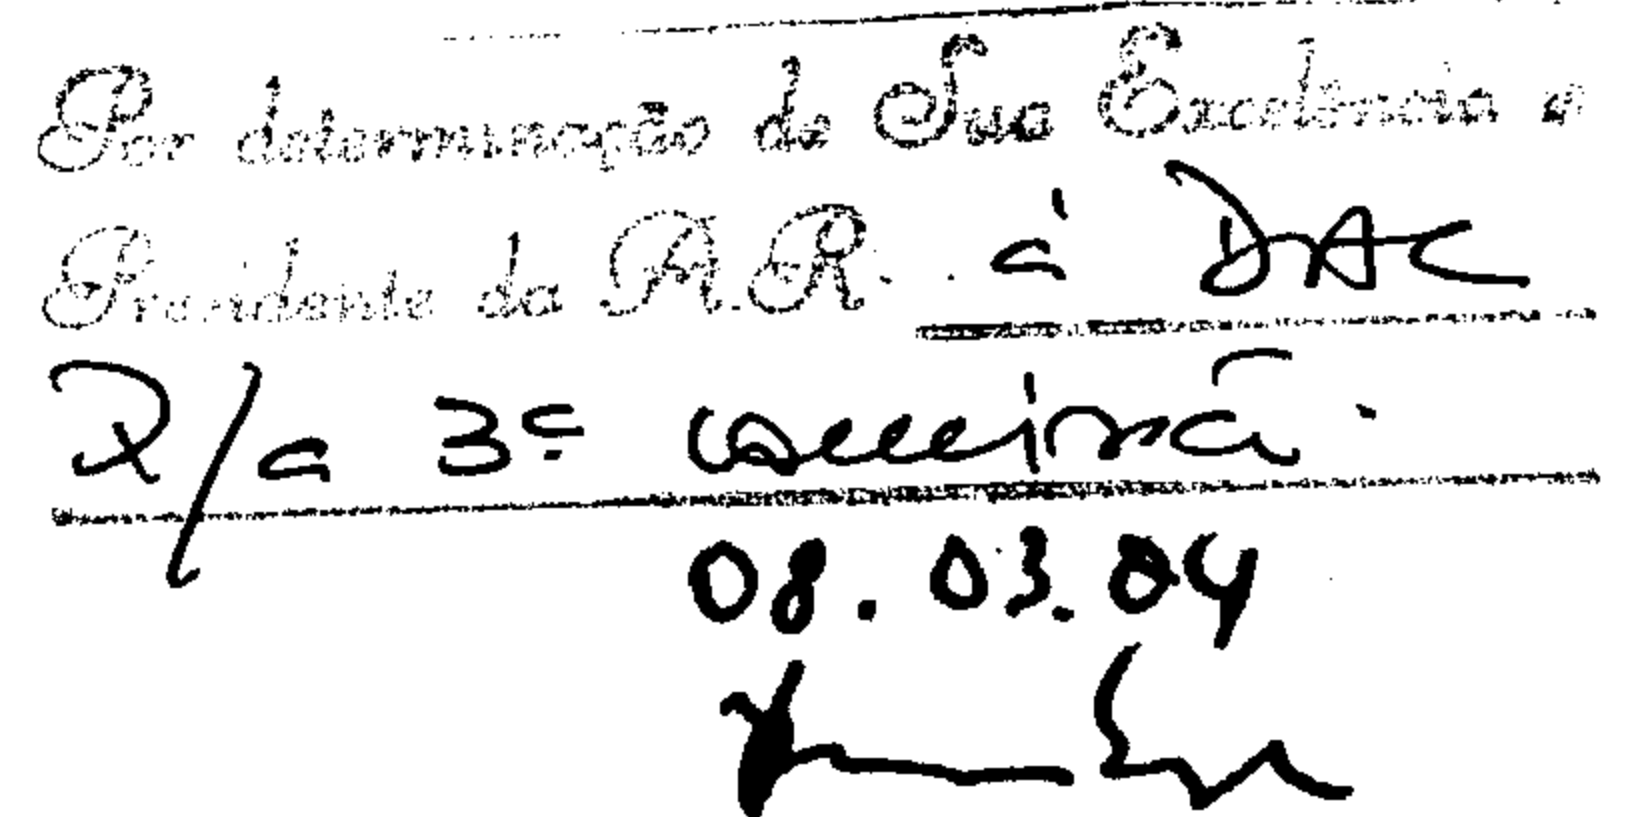 Por determinação de Sua Excelência o
Presidente da A.R. à DAC
P/a 3ª Comissão.
08.03.04